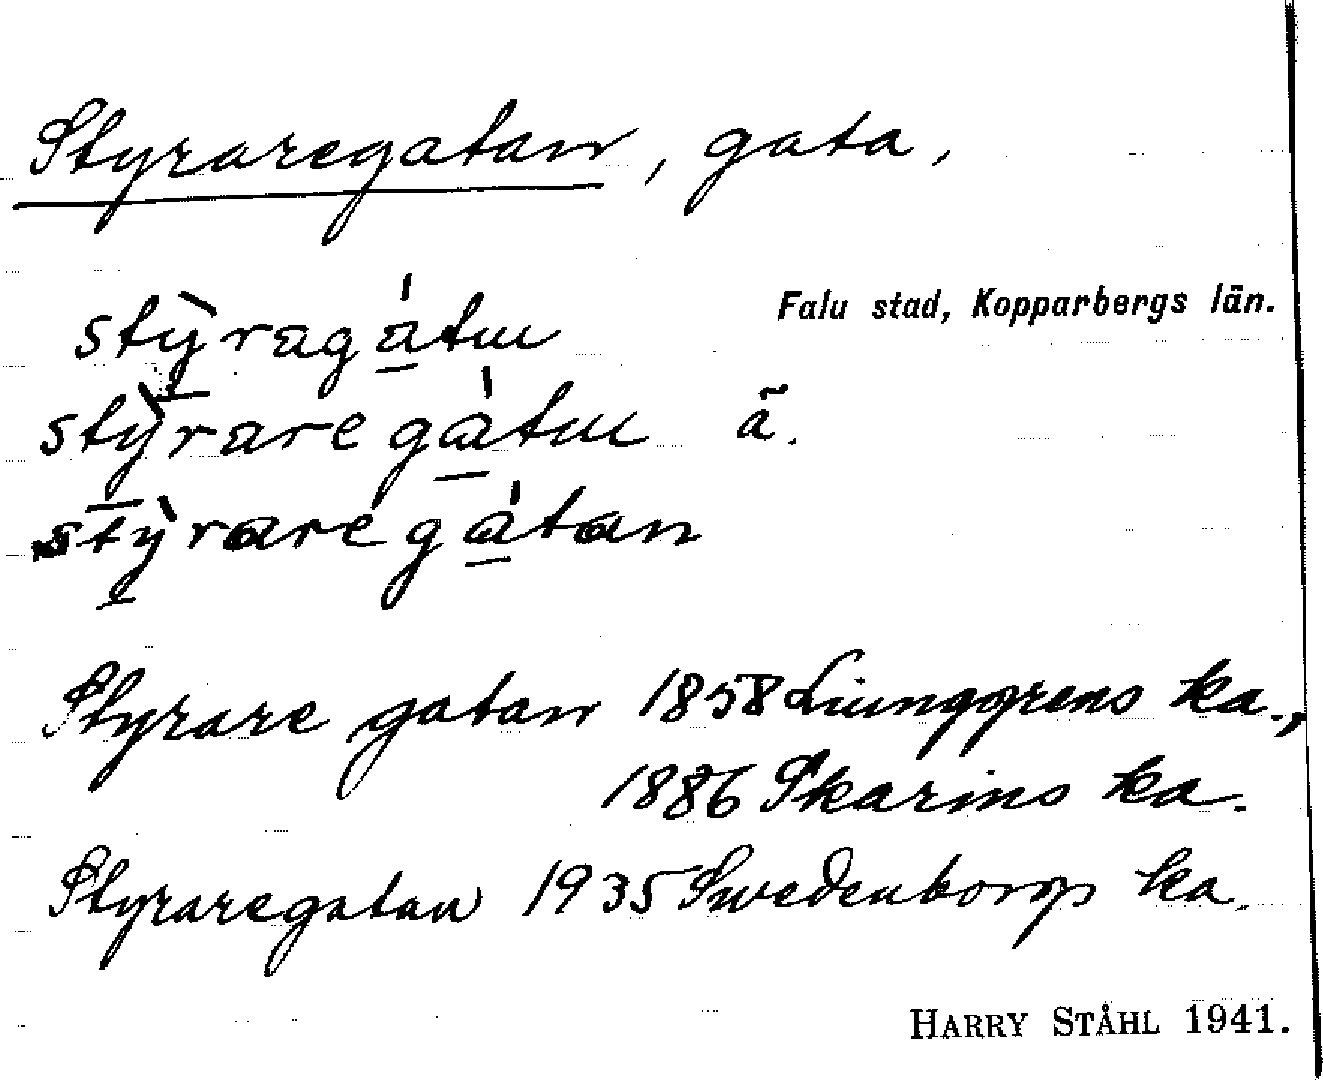 Styraregatan, gata,
Falu stad, Kopparbergs län.
stỳragátu
stỳraregàtu ä.
stỳraregàtan
Styrare gatan 1858 Ljunggrens ka.,
1886 Skarins ka.
Styraregatan 1935 Swedenborgs ka.
HARRY STÅHL 1941.